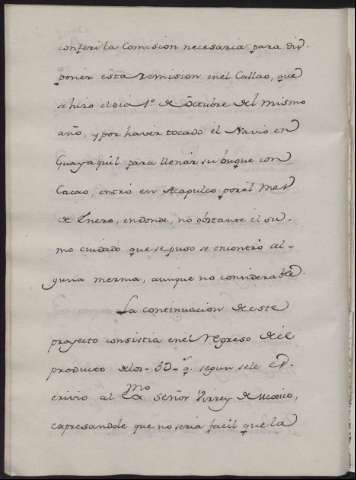 conferí la Comision necesaria para dis-
poner esta remision en el Callao, que
se hizo el dia 1º. de Octubre del mismo
año, y por haver tocado el Navio en
Guayaquil para llenar su buque con
Cacao, entró en Acapulco por el mes
de Enero, endonde, no obstante el su-
mo cuidado que se puso se encontró al-
guna merma, aunque no considerable.
La continuacion de este
proyecto consistia en el regreso del
producto delos 50 q.s segun sele es-
crivio al Exmo Señor Virrey de Mexico,
expresandole que no seria facil que la